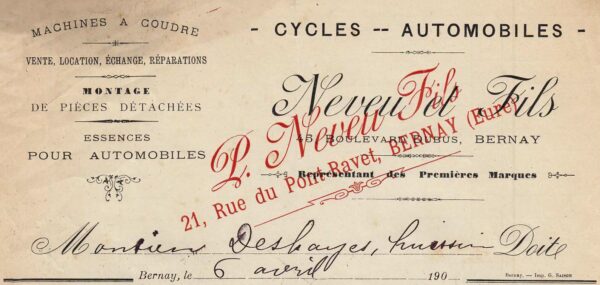 MACHINES A COUDRE
VENTE, LOCATION, ÉCHANGE, RÉPARATIONS
MONTAGE
DE PIÈCES DÉTACHÉES
ESSENCES
POUR AUTOMOBILES
- CYCLES -- AUTOMOBILES -
Neveu et Fils
43, BOULEVARD DUBUS, BERNAY
Représentant des Premières Marques
P. Neveu Fils
21, Rue du Pont-Ravet, BERNAY (Eure)
Monsieur Deshayes, huissier Doit
Bernay, le 6 avril 190
Bernay. — Imp. G. SAISON.